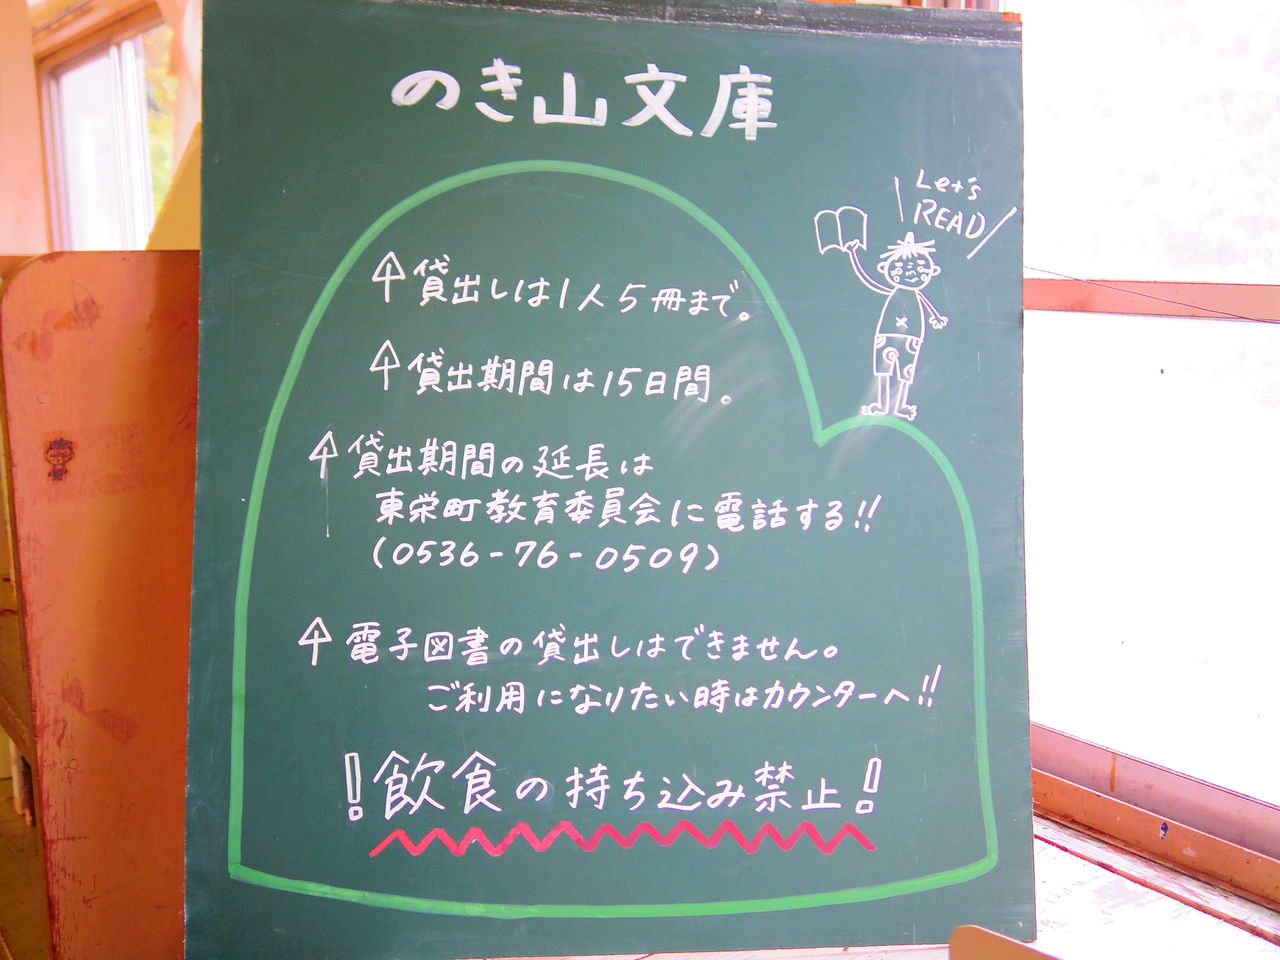 のき山文庫
Let's
READ
貸出しは1人5冊まで。
貸出期間は15日間。
貸出期間の延長は
東栄町教育委員会に電話する!!
(0536-76-0509)
電子図書の貸出しはできません。
ご利用になりたい時はカウンターへ!!
!飲食の持ち込み禁止!